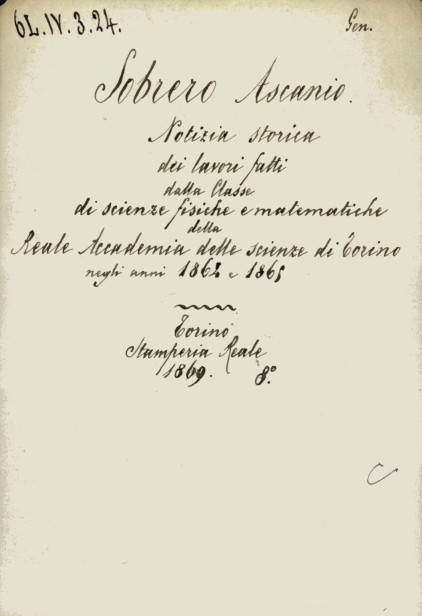 6L.IV.3.24.
Gen.
Sobrero Ascanio.
Notizia storica
dei lavori fatti
dalla Classe
di scienze fisiche e matematiche
della
Reale Accademia delle scienze di Torino
negli anni 1864 e 1865
Torino
Stamperia Reale
1869. 8°.
C